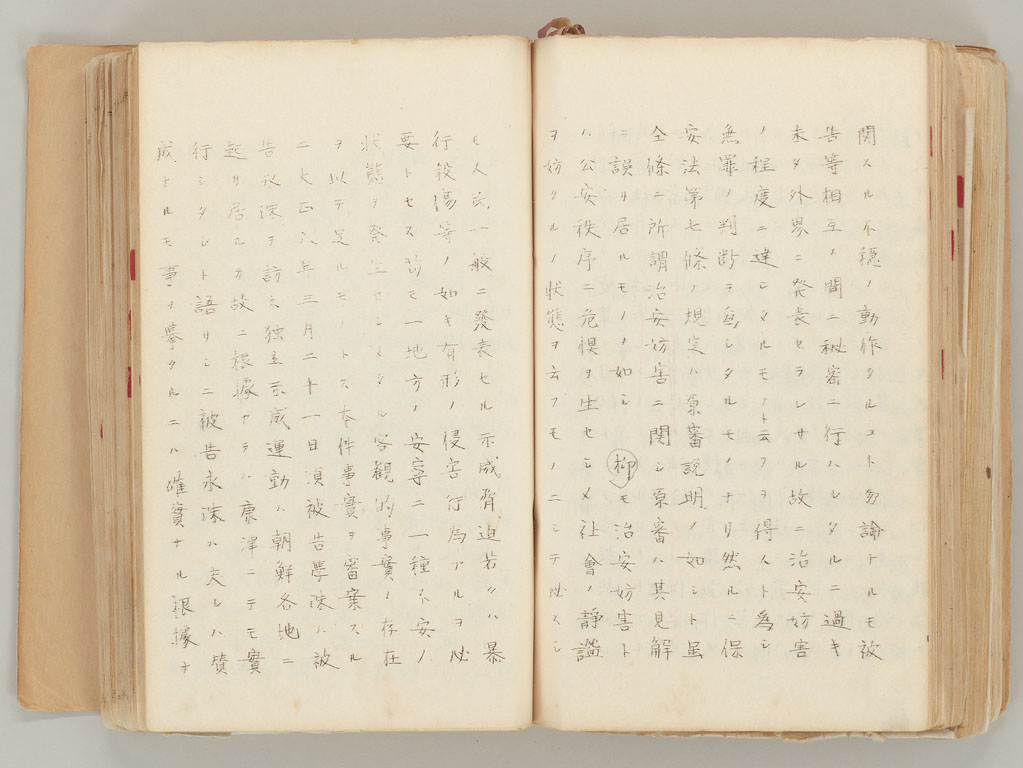 関スル不穏ノ動作タルコト勿論トルモ被
告等相互ノ間ニ秘密ニ行ハレタルニ過キ
未タ外界ニ発表セラレサル故ニ治安妨害
ノ程度ニ達シタルモノト云フヲ得スト為シ
無罪ノ判断ヲ為シタルモノナリ然ルニ保
安法第七條ノ規定ハ原審説明ノ如シト虽
仝條ニ所謂治安妨害ニ関シ原審ハ其見解
ヲ誤リ居ルモノノ如シ抑モ治安妨害ト
ハ公安秩序ニ危惧ヲ生セシメ社會ノ静謐
ヲ妨クルノ状態ヲ云フモノニシテ必スシ
モ人民一般ニ發表セル示威脅迫若クハ暴
行殺傷等ノ如キ有形ノ侵害行為アルヲ必
要トセス苟モ一地方ノ安寧ニ一種不安ノ
状態ヲ発生セシメタル客観的事實ノ存在
ヲ以テ足ルモノトス本件事實ヲ審案スル
ニ大正八年三月二十一日頃被告學洙ハ被
告永洙ヲ訪ネ独立示威運動ハ朝鮮各地ニ
起リ居ルカ故ニ根據アラハ康津ニテモ實
行シタシト語リシニ被告永洙ハ夫レハ賛
成ナルモ事ヲ擧クルニハ確實ナル根據ナ